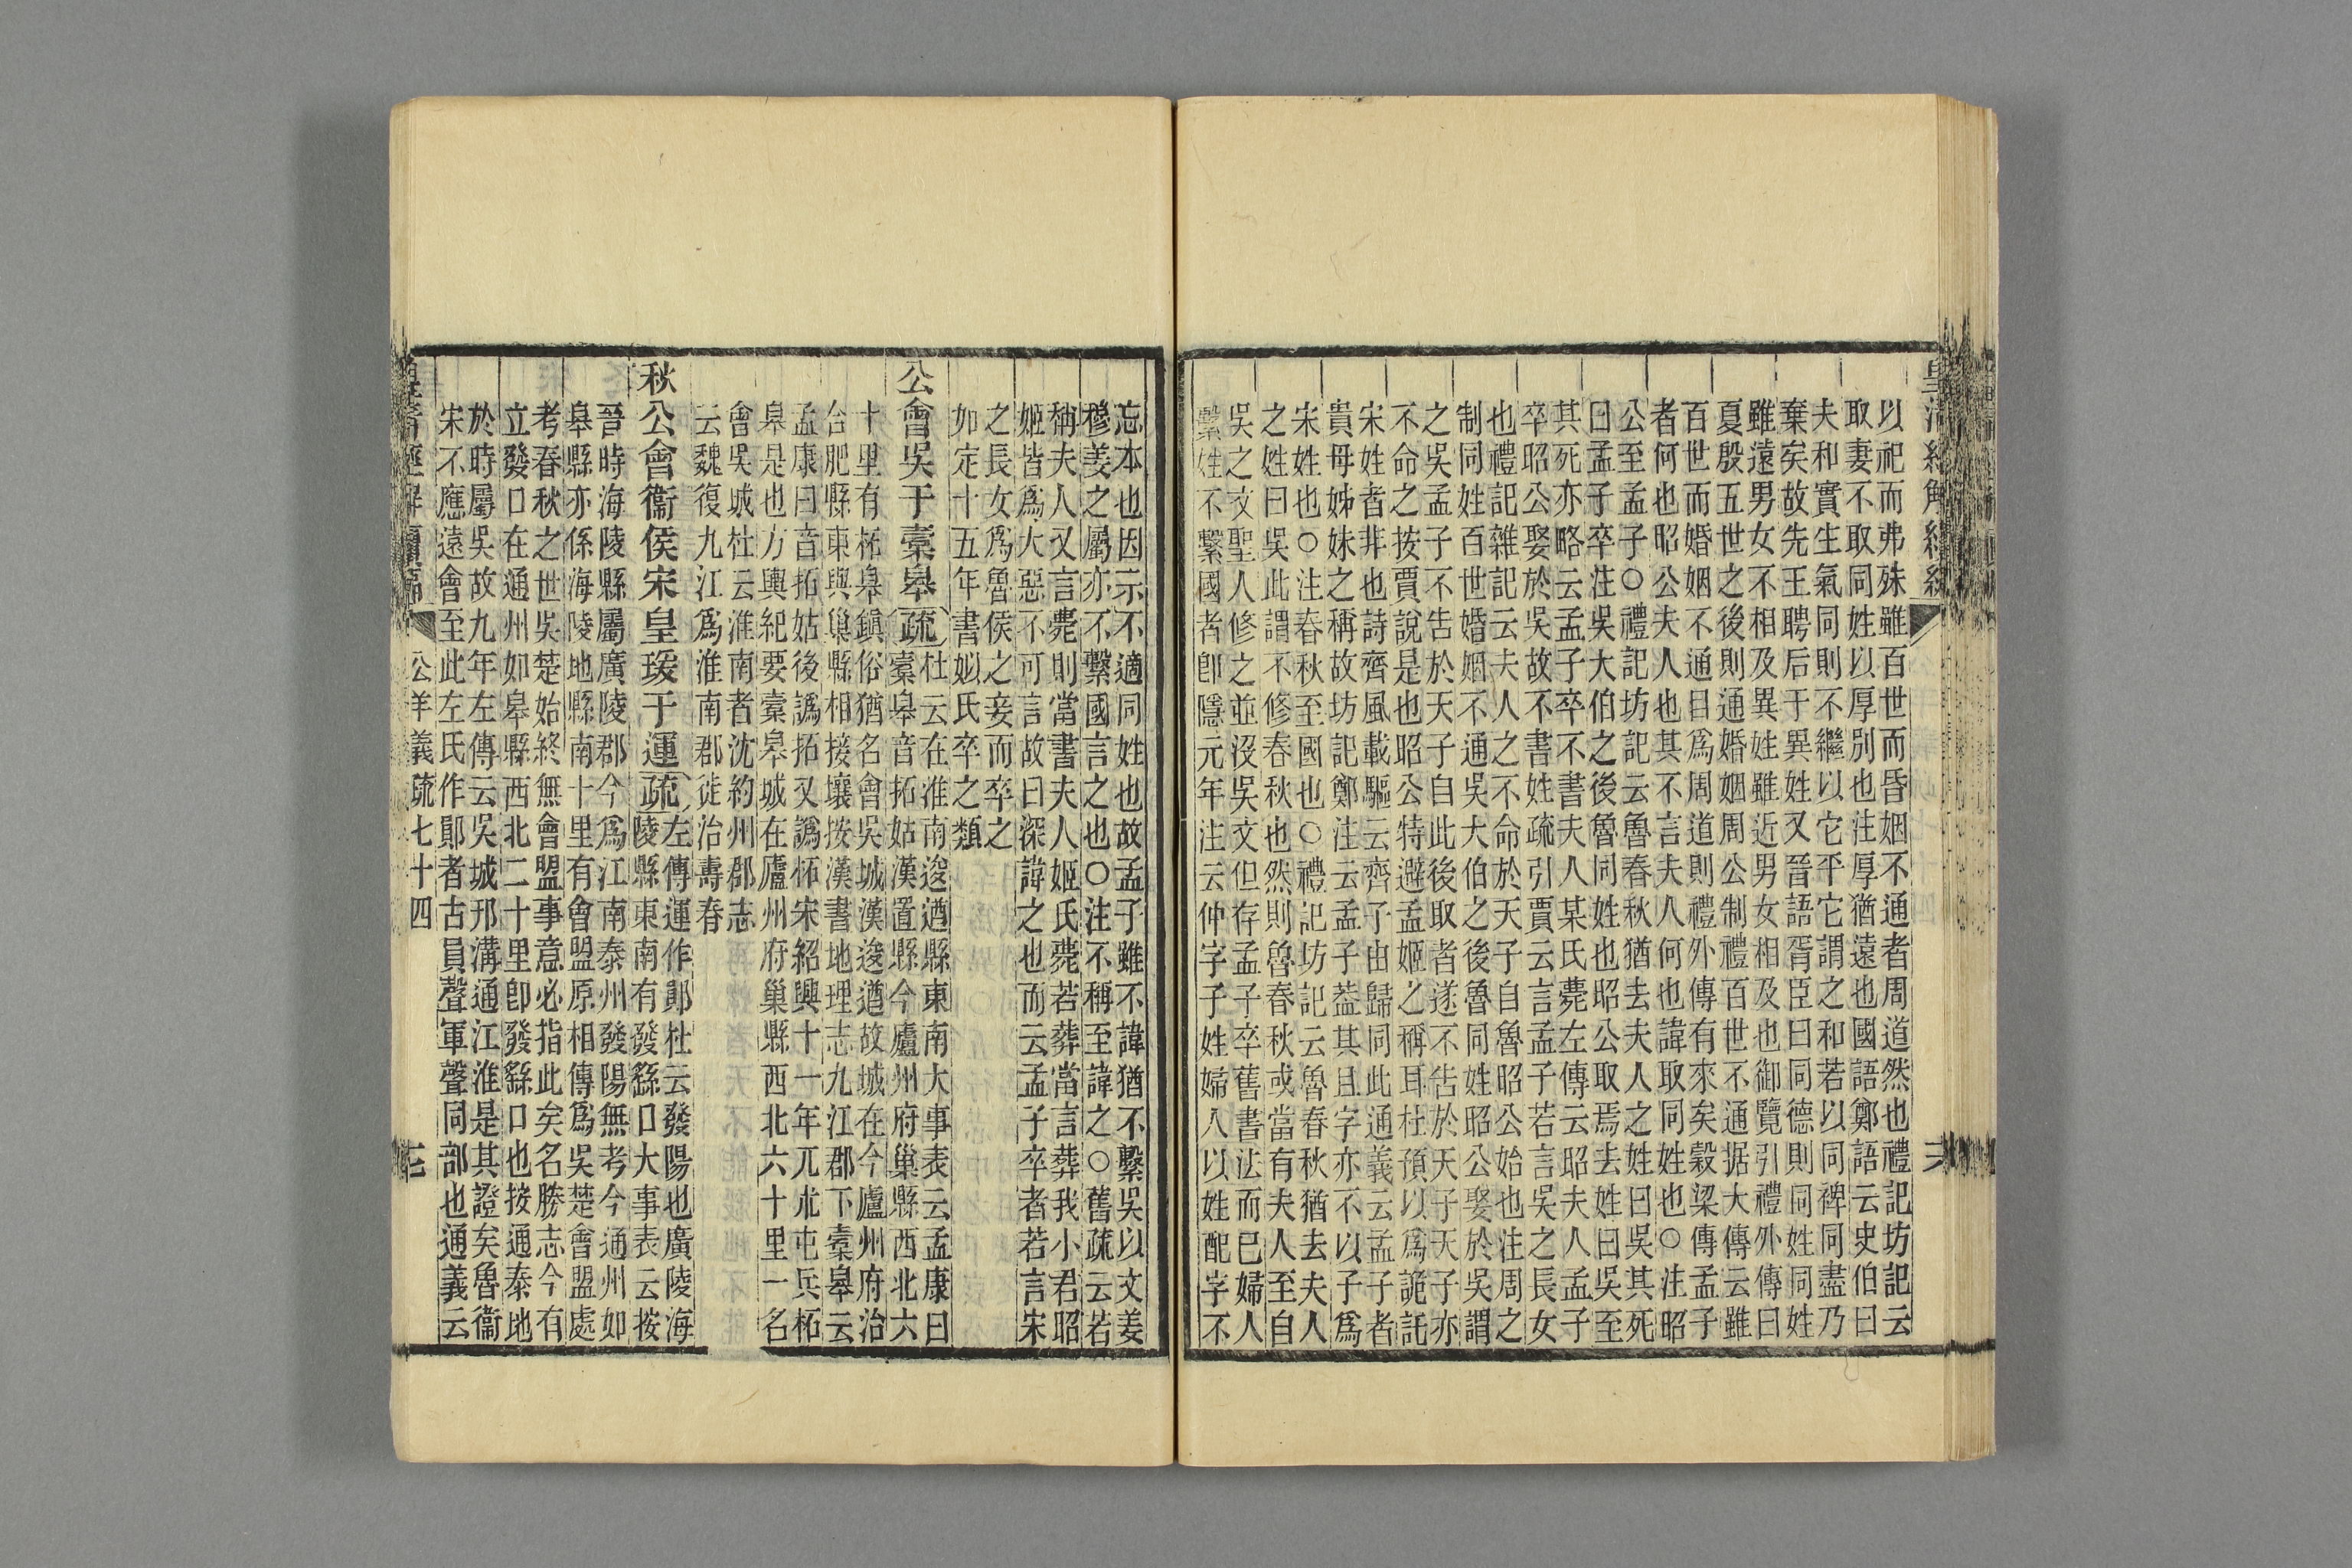 皇清經解續編
以祀而弗殊雖百世而昏姻不通者周道然也禮記坊記云
取妻不取同姓以厚別也注厚猶遠也國語鄭語云史伯曰
夫和實生氣同則不繼以它平它謂之和若以同裨同盡乃
棄矣故先王聘后于異姓又晉語胥臣曰同德則同姓同姓
雖遠男女不相及異姓雖近男女相及也御覽引禮外傳曰
夏殷五世之後則通婚姻周公制禮百世不通据大傳云雖
百世而婚姻不通目爲周道則禮外傳有來矣穀梁傳孟子
者何也昭公夫人也其不言夫人何也諱取同姓也○注昭
公至孟子○禮記坊記云魯春秋猶去夫人之姓曰吳其死
曰孟子卒注吳大伯之後魯同姓也昭公取焉去姓曰吳至
其死亦略云孟子卒不書夫人某氏薨左傳云昭夫人孟子
卒昭公娶於吳故不書姓疏引賈云言孟子若言吳之長女
也禮記雜記云夫人之不命於天子自魯昭公始也注周之
制同姓百世婚姻不通吳大伯之後魯同姓昭公娶於吳謂
之吳孟子不告於天子自此後取者遂不告於天子天子亦
不命之按賈說是也昭公特避孟姬之稱耳杜預以爲詭託
宋姓者非也詩齊風載驅云齊子由歸同此通義云孟子者
貴母姊妹之稱故坊記鄭注云孟子蓋其且字亦不以子爲
宋姓也○注春秋至國也○禮記坊記云魯春秋猶去夫人
之姓曰吳此謂不修春秋也然則魯春秋或當有夫人至自
吳之文聖人修之並沒吳文但存孟子卒舊書法而已婦人
繫姓不繫國者卽隱元年注云仲字子姓婦人以姓配字不
忘本也因示不適同姓也故孟子雖不諱猶不繫吳以文姜
穆姜之屬亦不繫國言之也○注不稱至諱之○舊疏云若
稱夫人又言薨則當書夫人姬氏薨若葬當言葬我小君昭
姬皆爲大惡不可言故曰深諱之也而云孟子卒者若言宋
之長女爲魯侯之妾而卒之
如定十五年書姒氏卒之類
公會吳于橐皋疏杜云在淮南逡遒縣東南大事表云孟康曰
橐皋音拓姑漢置縣今廬州府巢縣西北六
十里有柘皋鎮俗猶名會吳城漢逡遒故城在今廬州府治
合肥縣東與巢縣相接壤按漢書地理志九江郡下橐皋云
孟康曰音拓姑後譌拓又譌柘宋紹興十一年兀朮屯兵柘
皋是也方輿紀要橐皋城在廬州府巢縣西北六十里一名
會吳城杜云淮南者沈約州郡志
云魏復九江爲淮南郡徙治壽春
秋公會衞侯宋皇瑗于運疏左傳運作鄖杜云發陽也廣陵海
陵縣東南有發繇口大事表云按
晉時海陵縣屬廣陵郡今爲江南泰州發陽無考今通州如
皋縣亦係海陵地縣南十里有會盟原相傳爲吳楚會盟處
考春秋之世吳楚始終無會盟事意必指此矣名勝志今有
立發口在通州如皋縣西北二十里卽發繇口也按通泰地
於時屬吳故九年左傳云吳城邗溝通江淮是其證矣魯衞
宋不應遠會至此左氏作鄖者古員聲軍聲同部也通義云
公羊義疏七十四